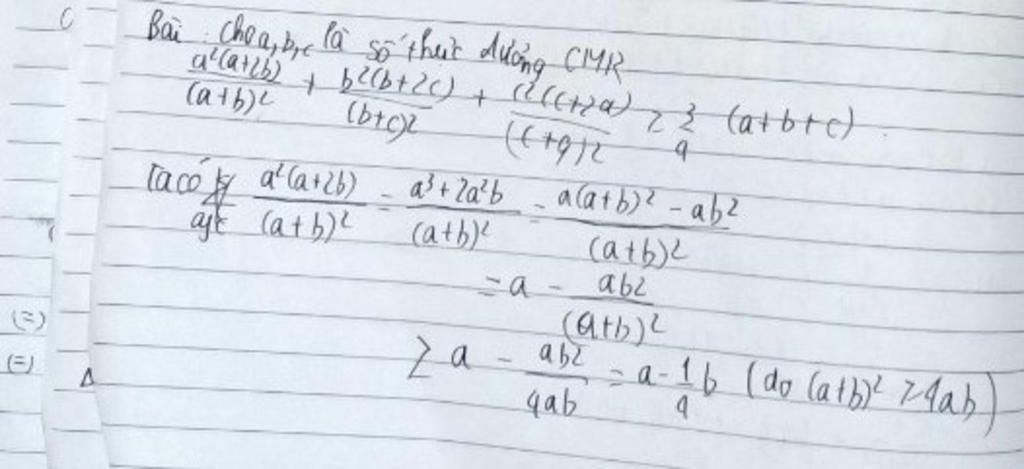 Bài : Cho a, b, c là số thực dương CMR
a²(a+2b)/(a+b)² + b²(b+2c)/(b+c)² + c²(c+2a)/(c+a)² ≥ 3/4 (a+b+c).
Ta có a²(a+2b)/(a+b)² = a³+2a²b/(a+b)² = a(a+b)² - ab²/(a+b)²
= a - ab²/(a+b)²
≥ a - ab²/4ab = a - 1/4 b (do (a+b)² ≥ 4ab)
(=)
(=)